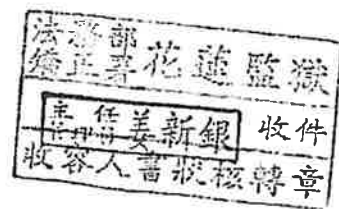 法務部
矯正署花蓮監獄
主任
管理員姜新銀 收件
收容人書狀核轉章